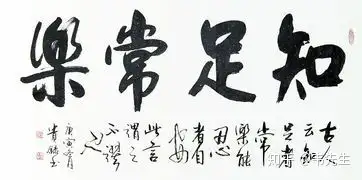 知足常樂
古人
云知
足者
常
樂能
忍
者自
安
此言
謂之
不謬
也
庚寅
知乎